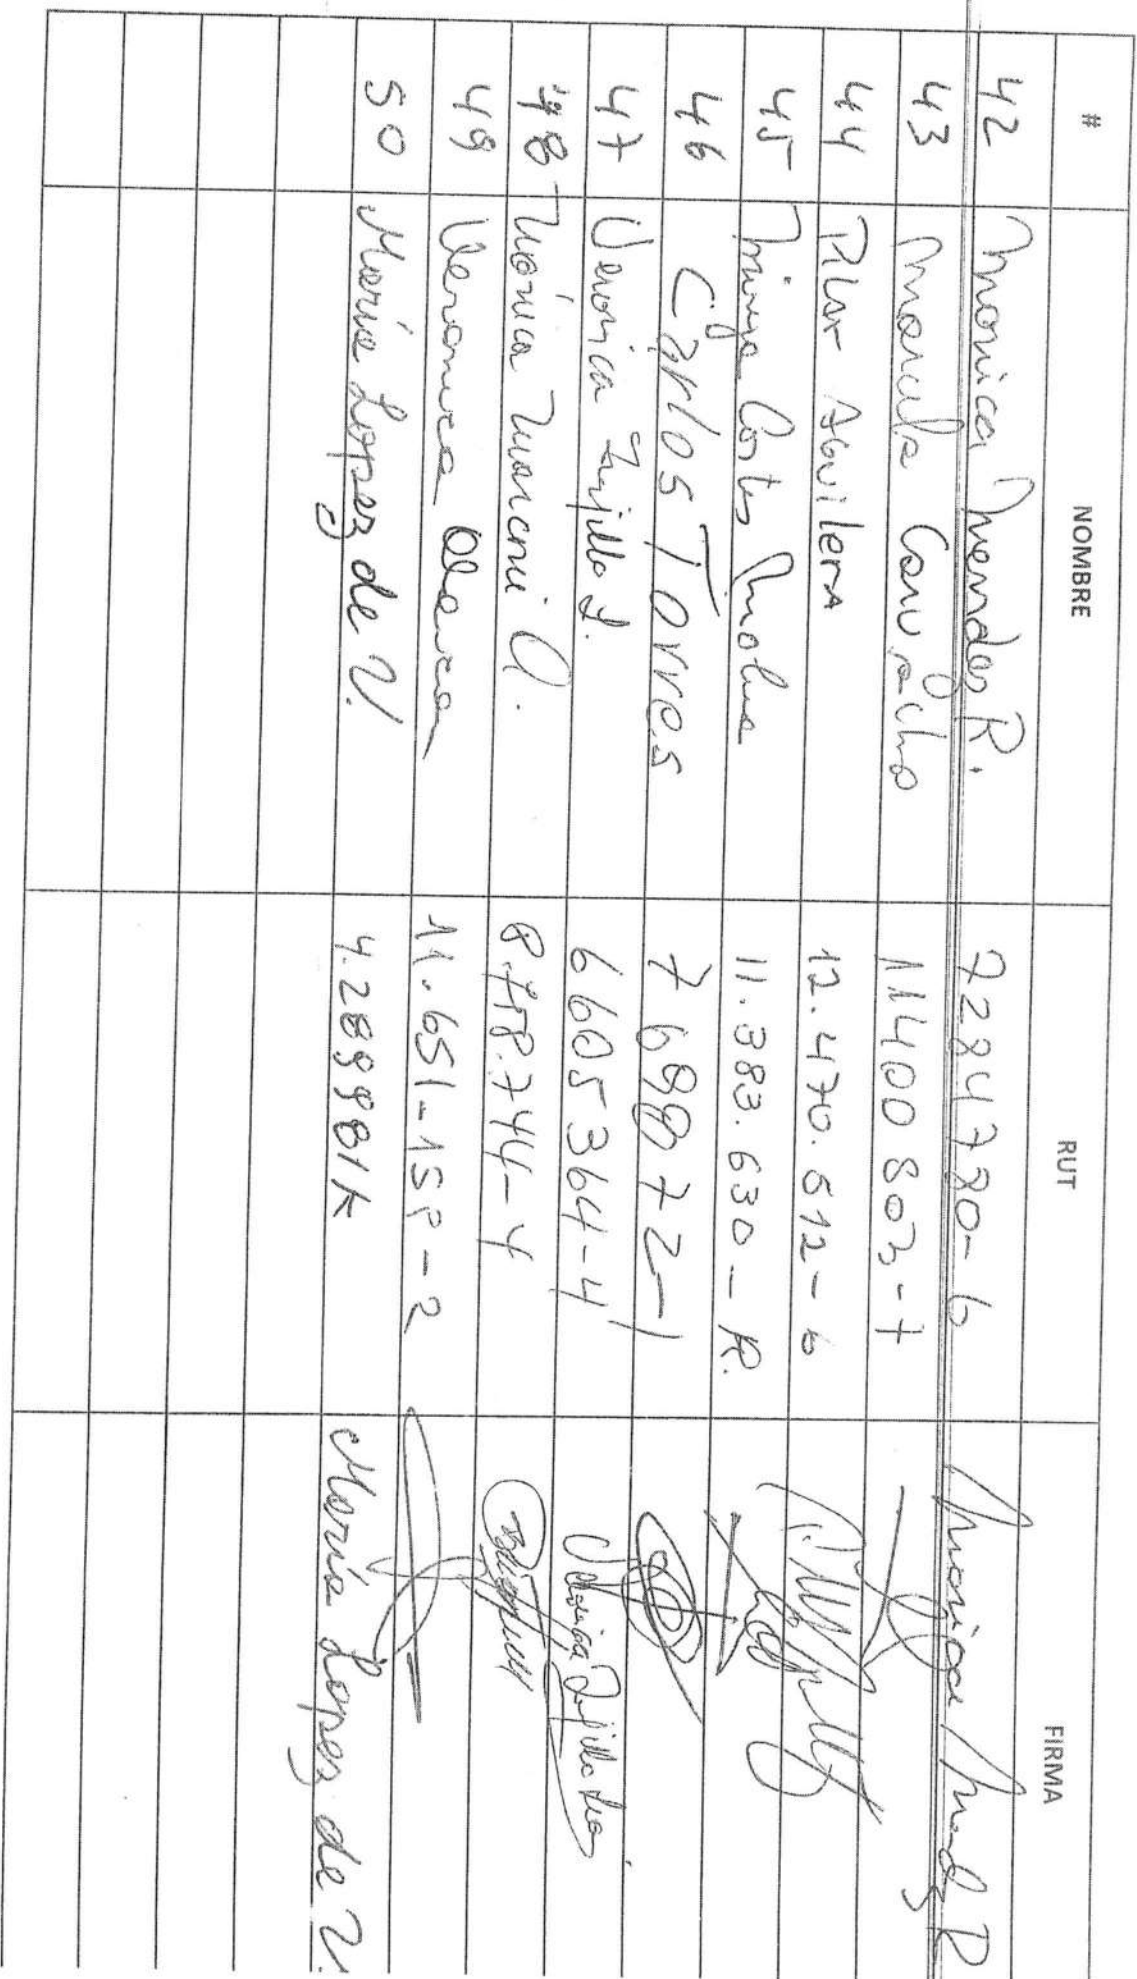 # NOMBRE RUT FIRMA
42 Monica Mendez R. 7284780-6 Monica Mendez R
43 Marcela 11400803-7
44 Pilar Aguilera 12.470.512-6
45 Cortes 11.383.630-K.
46 Carlos Torres 7698872-1
47 Veronica Trujillo L. 6605364-4 Veronica Trujillo
48 Mónica 8.758.744-4
49 Veronica 11.651-158-2
50 María Lopez de V. 4.289981K María Lopez de V.